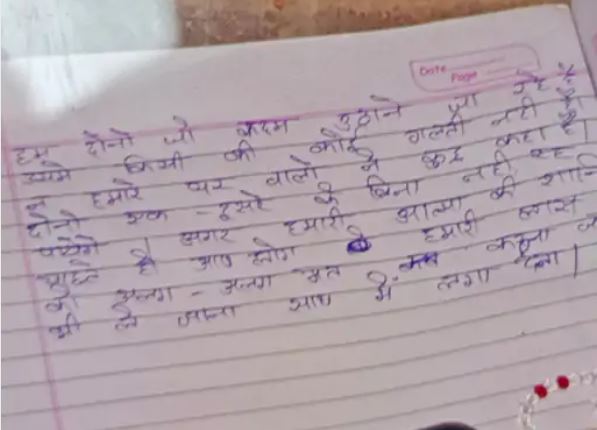 Date
Page
हम दोनो जो कदम उठाने जा रहे है
उसमे किसी की कोई गलती नही है।
न हमारे घर वालो ने कुछ कहा है।
दोनो एक-दुसरे के बिना नही रह
पायेंगे। अगर हमारी आत्मा की शान्ति
चाहते हो आप लोग हमारी लाश
को अलग-अलग मत करना
भी ले जाना साथ में लगा देना।